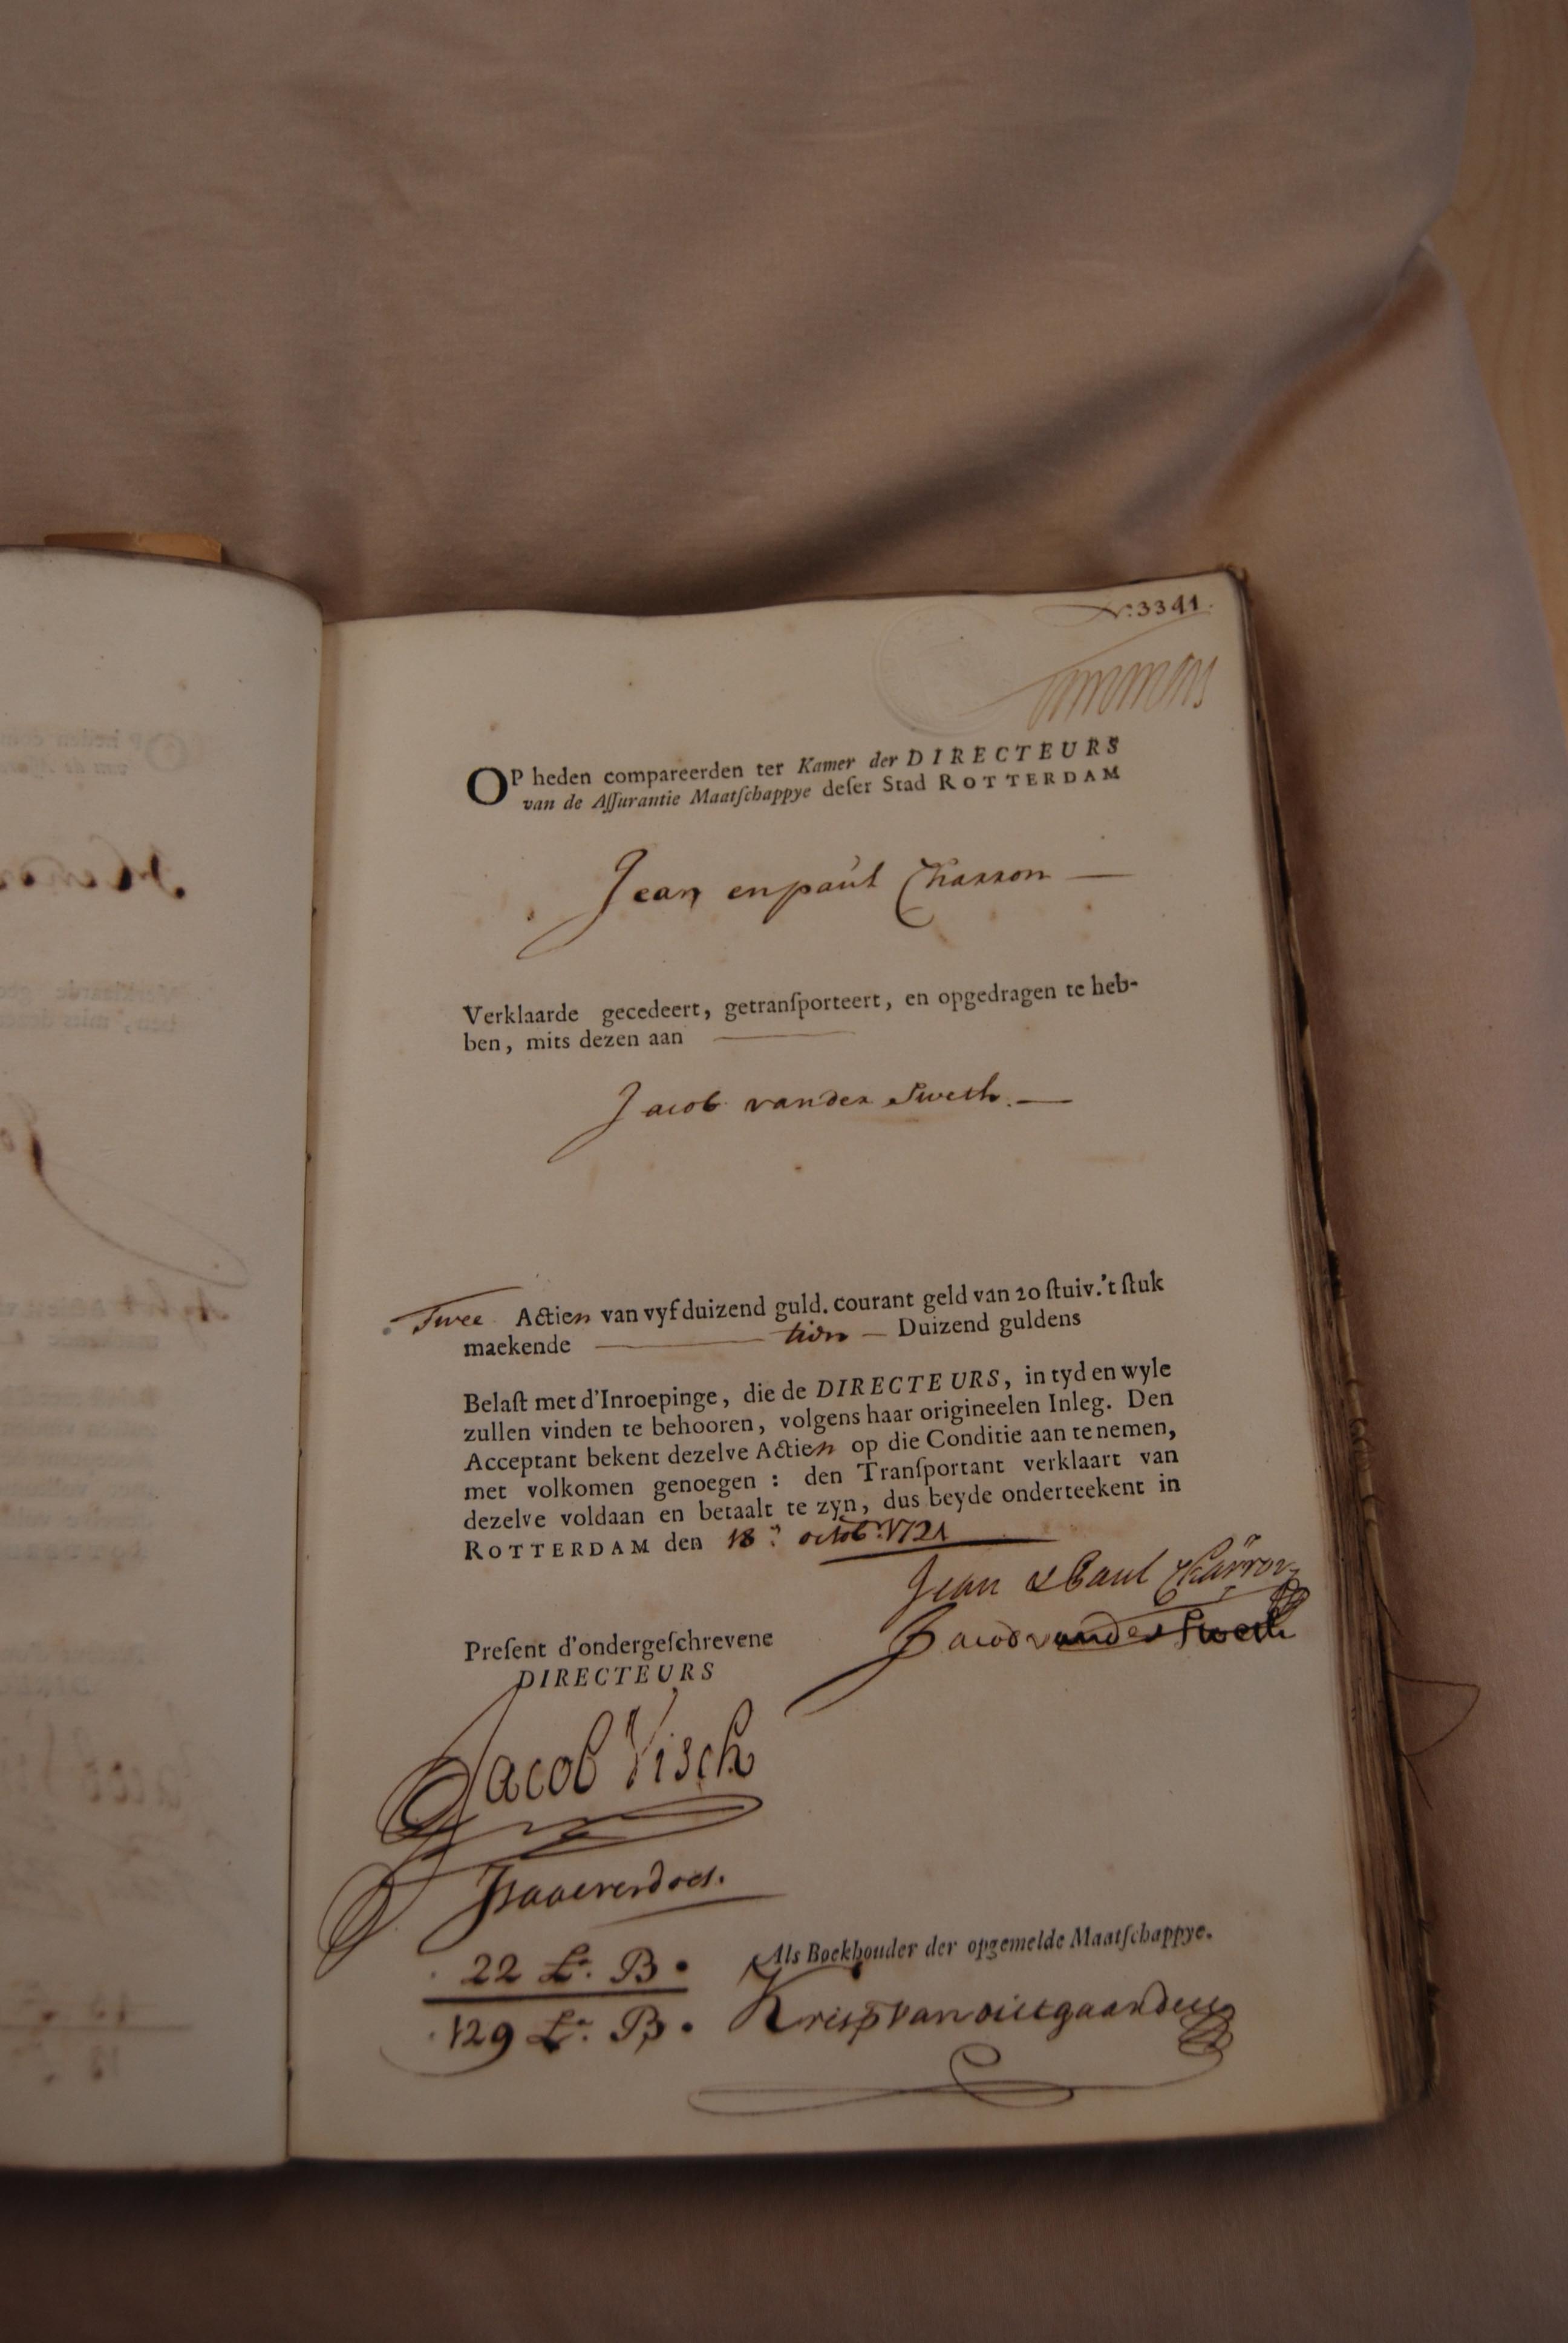 No. 3341.
OP heden compareerden ter Kamer der DIRECTEURS
van de Aſſurantie Maatſchappye deſer Stad ROTTERDAM
Jean en paul Charron —
Verklaarde gecedeert, getranſporteert, en opgedragen te heb-
ben, mits dezen aan
Jacob vander Sweth. —
Twee Actien van vyfduizend guld. courant geld van 20 ſtuiv. 't ſtuk
maekende — tien — Duizend guldens
Belaſt met d'Inroepinge, die de DIRECTEURS, in tyd en wyle
zullen vinden te behooren, volgens haar origineelen Inleg. Den
Acceptant bekent dezelve Actien op die Conditie aan te nemen,
met volkomen genoegen : den Tranſportant verklaart van
dezelve voldaan en betaalt te zyn, dus beyde onderteekent in
ROTTERDAM den 18: octob: 1721
Jean & Paul Charron
Jacob vander Sweth
Preſent d'ondergeſchrevene
DIRECTEURS
Jacob Visch
Als Boekhouder der opgemelde Maatſchappye.
22 Lr. B.
129 Lr. B.